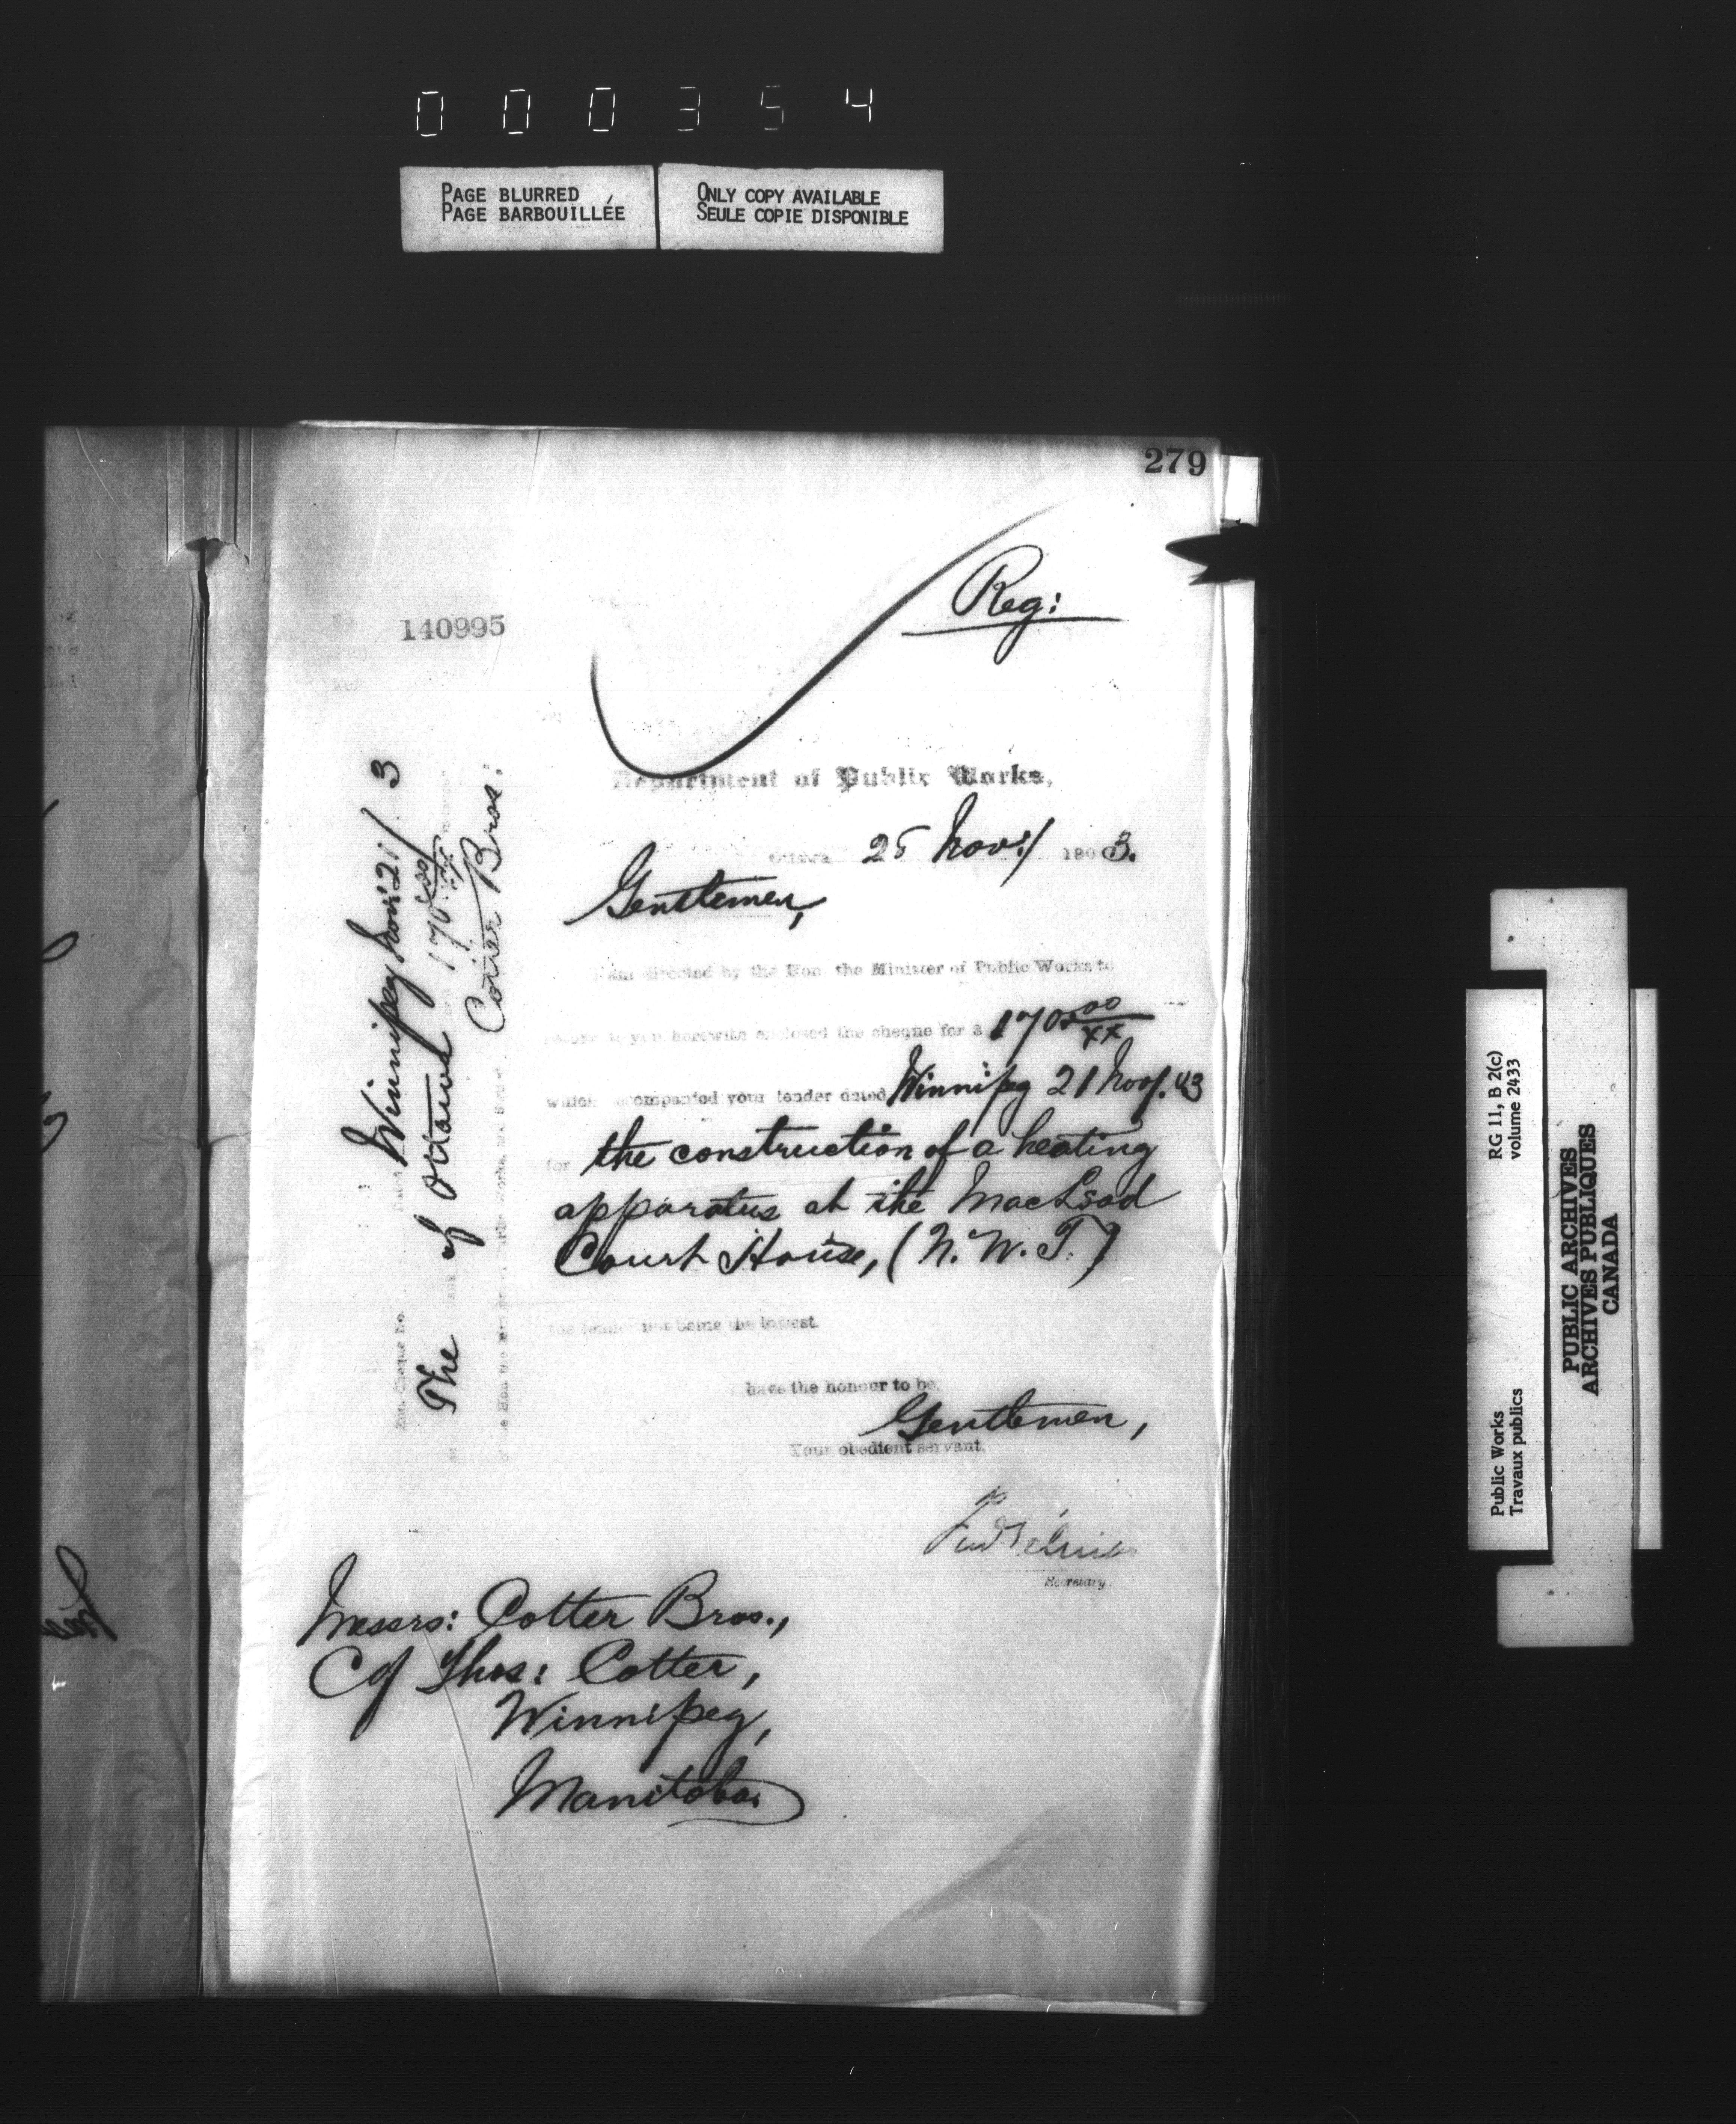 000354
PAGE BLURRED
PAGE BARBOUILLÉE
ONLY COPY AVAILABLE
SEULE COPIE DISPONIBLE
279
Reg:
140995
Department of Public Works,
Ottawa 25 Nov:/ 1903.
Gentlemen,
I am directed by the Hon. the Minister of Public Works to
return to you herewith enclosed the cheque for $ 170.00/xx
which accompanied your tender dated Winnipeg 21 Nov/. 03
for the construction of a heating
apparatus at the MacLeod
Court House, (N. W. T.)
the tender not being the lowest.
I have the honour to be,
Gentlemen,
Your obedient servant,
Secretary.
Messrs: Cotter Bros.,
C/o Thos: Cotter,
Winnipeg,
Manitoba.
Winnipeg Nov: 21/ 3
The of Ottawa 170
Cotter Bros:
Public Works
Travaux publics
RG 11, B 2(c)
volume 2433
PUBLIC ARCHIVES
ARCHIVES PUBLIQUES
CANADA